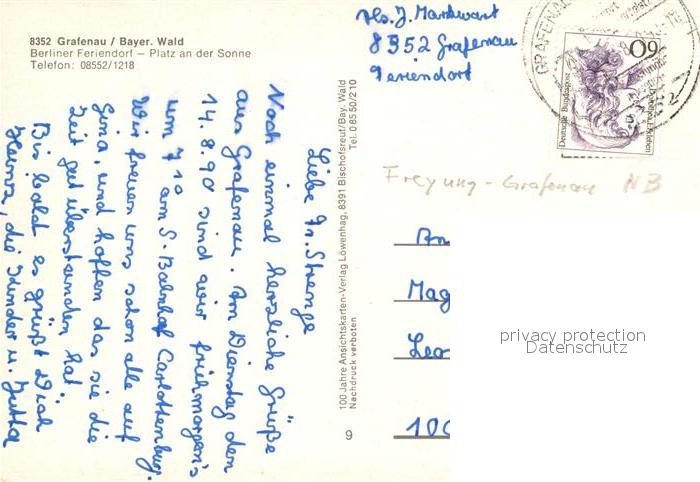 8352 Grafenau / Bayer. Wald
Berliner Feriendorf – Platz an der Sonne
Telefon: 08552/1218
Liebe Fr. Strenge
Noch einmal herzliche Grüße
aus Grafenau. Am Dienstag den
14. 8. 90 sind wir frühmorgen's
um 7 10 am S-Bahnhof Carlottenburg.
Wir freuen uns schon alle auf
Gina, und hoffen das sie die
Zeit gut überstanden hat.
Bis bald es grüßt Dich
Heinz, die Kinder u. Jutta
100 Jahre Ansichtskarten-Verlag Löwenhag, 8391 Bischofsreut/Bay. Wald
Nachdruck verboten
Tel. 0 85 50/210
9
Abs. J. Markwart
8352 Grafenau
Feriendorf
GRAFENAU
60
Deutsche Bundespost
Freyung-Grafenau NB
An
Mag
Leo
100
privacy protection
Datenschutz